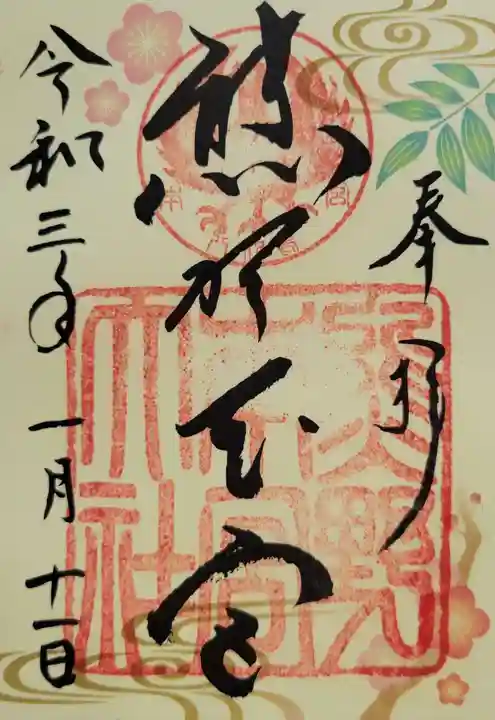 奉拝
熊野本宮
熊野
本宮
大社
令和三年一月十一日